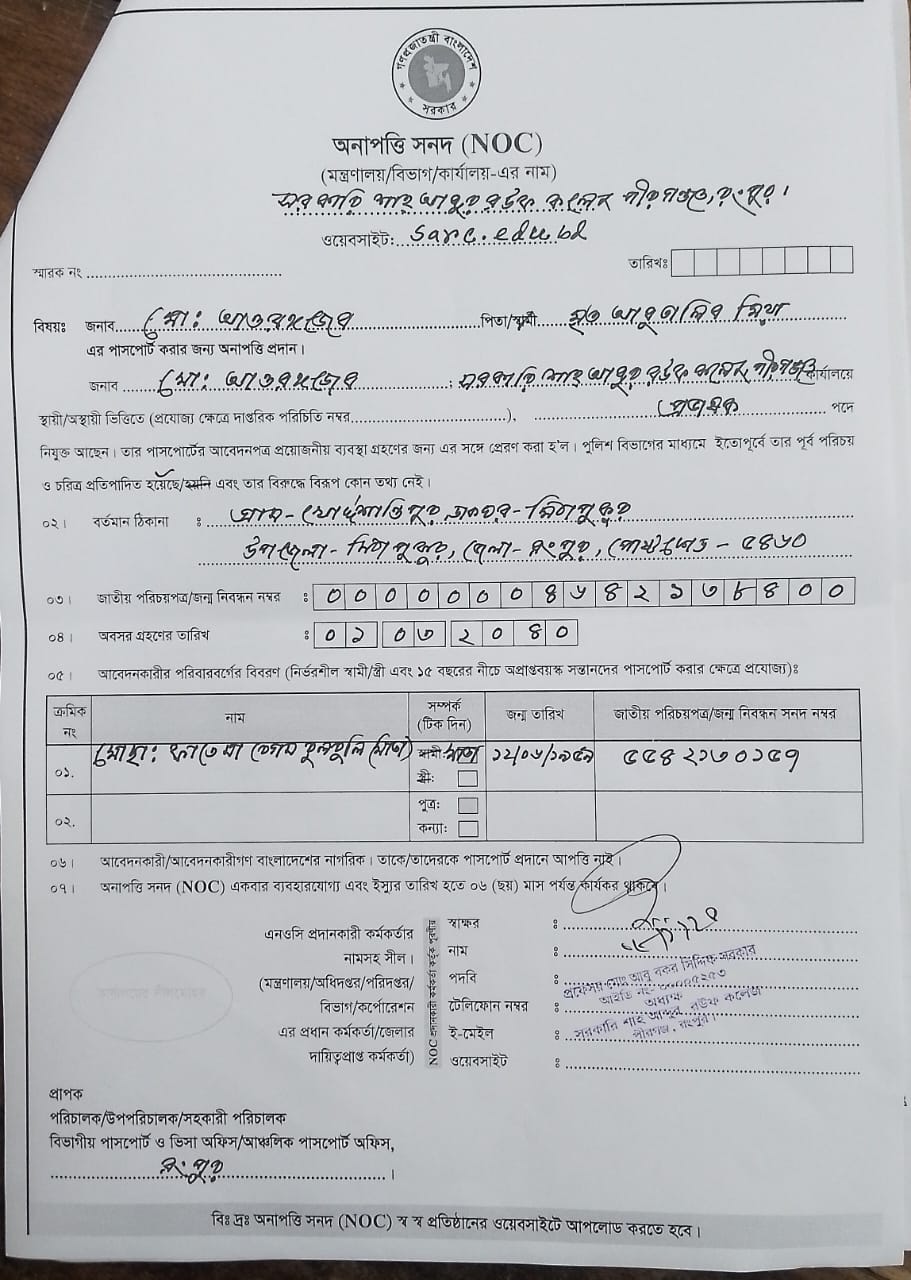 গণপ্রজাতন্ত্রী বাংলাদেশ
সরকার
অনাপত্তি সনদ (NOC)
(মন্ত্রণালয়/বিভাগ/কার্যালয়-এর নাম)
সরকারি শাহ আব্দুর রউফ কলেজ পীরগঞ্জ, রংপুর।
ওয়েবসাইট: sarc.edu.bd
স্মারক নং
তারিখঃ
বিষয়ঃ জনাব মো: আওরঙ্গজেব পিতা/স্বামী মৃত আবু তালিব মিয়া
এর পাসপোর্ট করার জন্য অনাপত্তি প্রদান।
জনাব মো: আওরঙ্গজেব ; সরকারি শাহ আব্দুর রউফ কলেজ, পীরগঞ্জ কার্যালয়ে
স্থায়ী/অস্থায়ী ভিত্তিতে (প্রযোজ্য ক্ষেত্রে দাপ্তরিক পরিচিতি নম্বর), প্রভাষক পদে
নিযুক্ত আছেন। তার পাসপোর্টের আবেদনপত্র প্রয়োজনীয় ব্যবস্থা গ্রহণের জন্য এর সঙ্গে প্রেরণ করা হ'ল। পুলিশ বিভাগের মাধ্যমে ইতোপূর্বে তার পূর্ব পরিচয়
ও চরিত্র প্রতিপাদিত হয়েছে/হয়নি এবং তার বিরুদ্ধে বিরূপ কোন তথ্য নেই।
০২। বর্তমান ঠিকানা : গ্রাম- খোর্দ্দশান্তিপুর, ডাকঘর- মিঠাপুকুর
উপজেলা- মিঠাপুকুর, জেলা- রংপুর, পোস্টকোড - ৫৪৬০
০৩। জাতীয় পরিচয়পত্র/জন্ম নিবন্ধন নম্বর : ০ ০ ০ ০ ০ ০ ০ ৪ ৬ ৪ ২ ১ ৭ ৮ ৪ ০ ০
০৪। অবসর গ্রহণের তারিখ : ০ ১ ০ ৭ ২ ০ ৪ ০
০৫। আবেদনকারীর পরিবারবর্গের বিবরণ (নির্ভরশীল স্বামী/স্ত্রী এবং ১৫ বছরের নীচে অপ্রাপ্তবয়স্ক সন্তানদের পাসপোর্ট করার ক্ষেত্রে প্রযোজ্য)ঃ
ক্রমিক নং নাম সম্পর্ক (টিক দিন) জন্ম তারিখ জাতীয় পরিচয়পত্র/জন্ম নিবন্ধন সনদ নম্বর
০১. মোছা: ফাতেমা বেগম বুলবুলি (মাতা) স্বামী: মাতা ১২/০৬/১৯৫৯ ৫৫৪২১৭০১৫৭
স্ত্রী:
০২. পুত্র:
কন্যা:
০৬। আবেদনকারী/আবেদনকারীগণ বাংলাদেশের নাগরিক। তাকে/তাদেরকে পাসপোর্ট প্রদানে আপত্তি নাই।
০৭। অনাপত্তি সনদ (NOC) একবার ব্যবহারযোগ্য এবং ইস্যুর তারিখ হতে ০৬ (ছয়) মাস পর্যন্ত কার্যকর থাকবে।
এনওসি প্রদানকারী কর্মকর্তার
নামসহ সীল।
(মন্ত্রণালয়/অধিদপ্তর/পরিদপ্তর/
বিভাগ/কর্পোরেশন
এর প্রধান কর্মকর্তা/জেলার
দায়িত্বপ্রাপ্ত কর্মকর্তা)
NOC প্রদানকারী কর্মকর্তা কর্তৃক পূরণীয়
স্বাক্ষর :
নাম :
পদবি :
টেলিফোন নম্বর :
ই-মেইল :
ওয়েবসাইট :
প্রফেসর মোঃ আবু বকর সিদ্দিক সরকার
অধ্যক্ষ
সরকারি শাহ আব্দুর রউফ কলেজ
পীরগঞ্জ, রংপুর।
প্রাপক
পরিচালক/উপপরিচালক/সহকারী পরিচালক
বিভাগীয় পাসপোর্ট ও ভিসা অফিস/আঞ্চলিক পাসপোর্ট অফিস,
রংপুর।
বিঃ দ্রঃ অনাপত্তি সনদ (NOC) স্ব স্ব প্রতিষ্ঠানের ওয়েবসাইটে আপলোড করতে হবে।